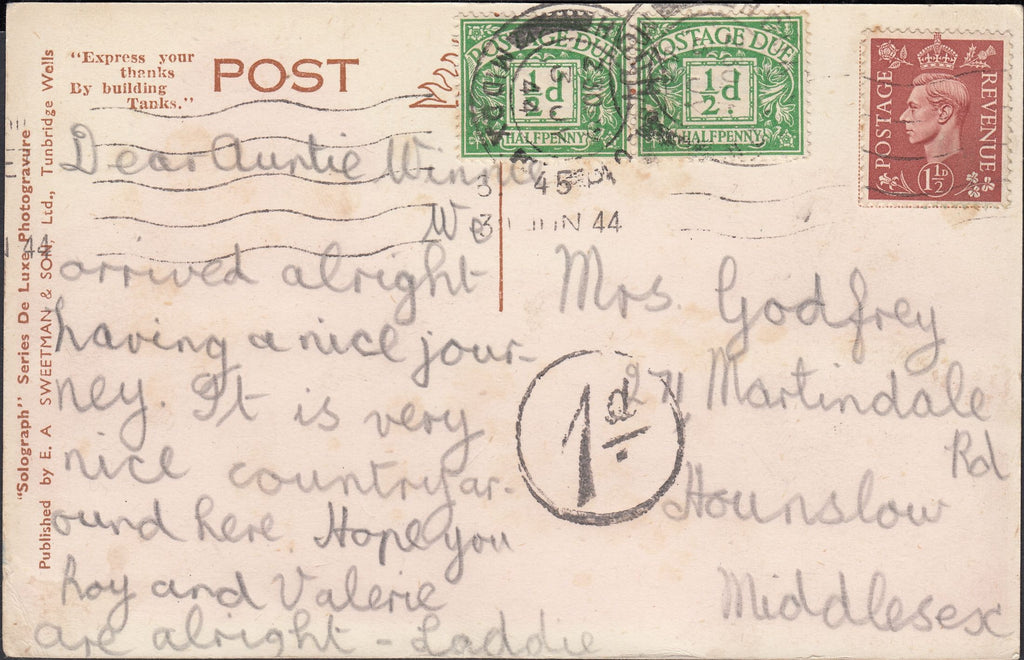 "Express your
thanks
By building
Tanks."
POST
POSTAGE DUE
½d
HALFPENNY
POSTAGE DUE
½d
HALFPENNY
POSTAGE
REVENUE
1½D
3 45 PM
30 JUN 44
44
"Solograph" Series De Luxe Photogravure
Published by E. A SWEETMAN & SON, Ltd., Tunbridge Wells
Dear Auntie Winnie
We
arrived alright
having a nice jour-
ney. It is very
nice country ar-
ound here Hope you
Roy and Valerie
are alright - Laddie
1d
Mrs. Godfrey
271, Martindale
Rd
Hounslow
Middlesex